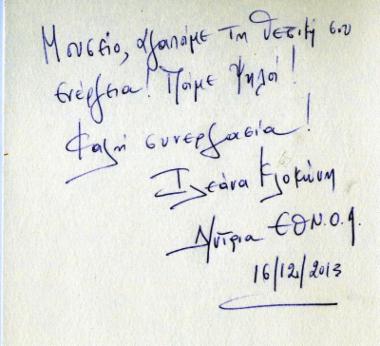 Μουσείο, αγαπάμε τη θετική σου
ενέργεια! Πάμε ψηλά!
Καλή συνεργασία!
Ιλεάνα Κλοκώνη
Δ/ντρια Ε.Θ.Ν.Ο.Α.
16/12/2013